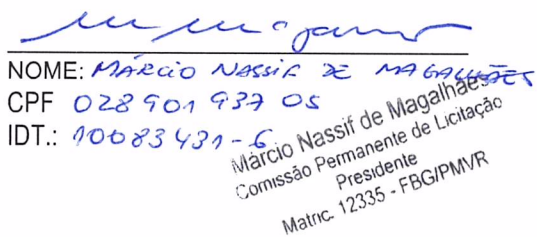 NOME: MÁRCIO NASSIF DE MAGALHÃES
CPF 028 901 937 05
IDT.: 10083431-6
Márcio Nassif de Magalhães
Comissão Permanente de Licitação
Presidente
Matric. 12335 - FBG/PMVR